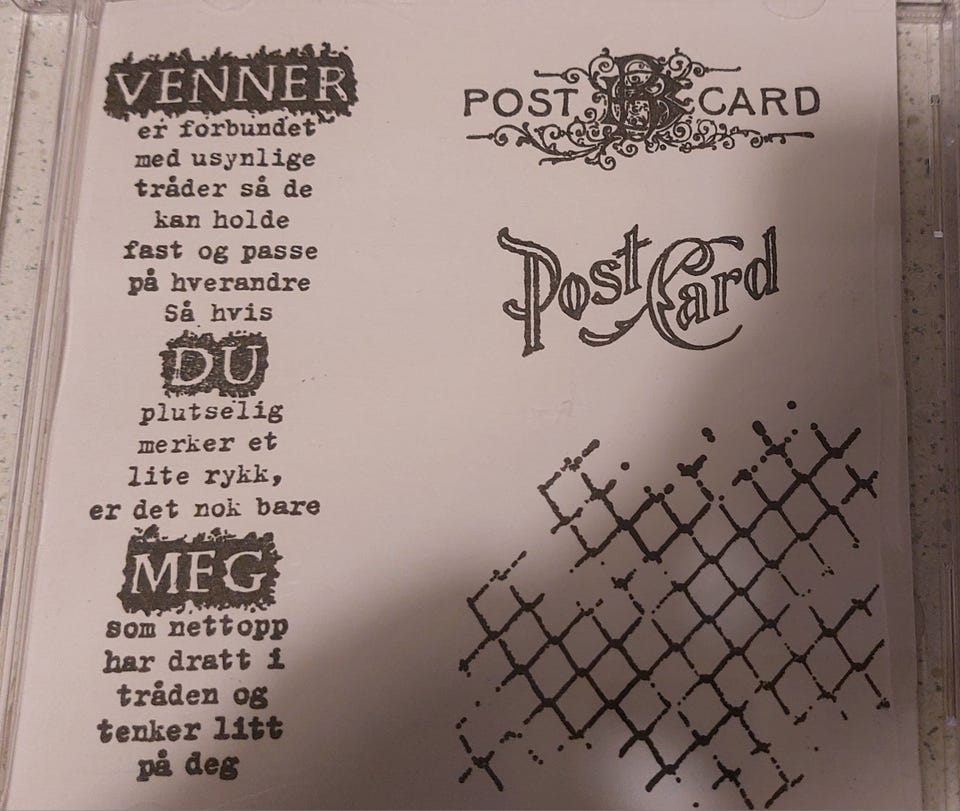 VENNER
er forbundet
med usynlige
tråder så de
kan holde
fast og passe
på hverandre
Så hvis
DU
plutselig
merker et
lite rykk,
er det nok bare
MEG
som nettopp
har dratt i
tråden og
tenker litt
på deg
POST CARD
Post Card